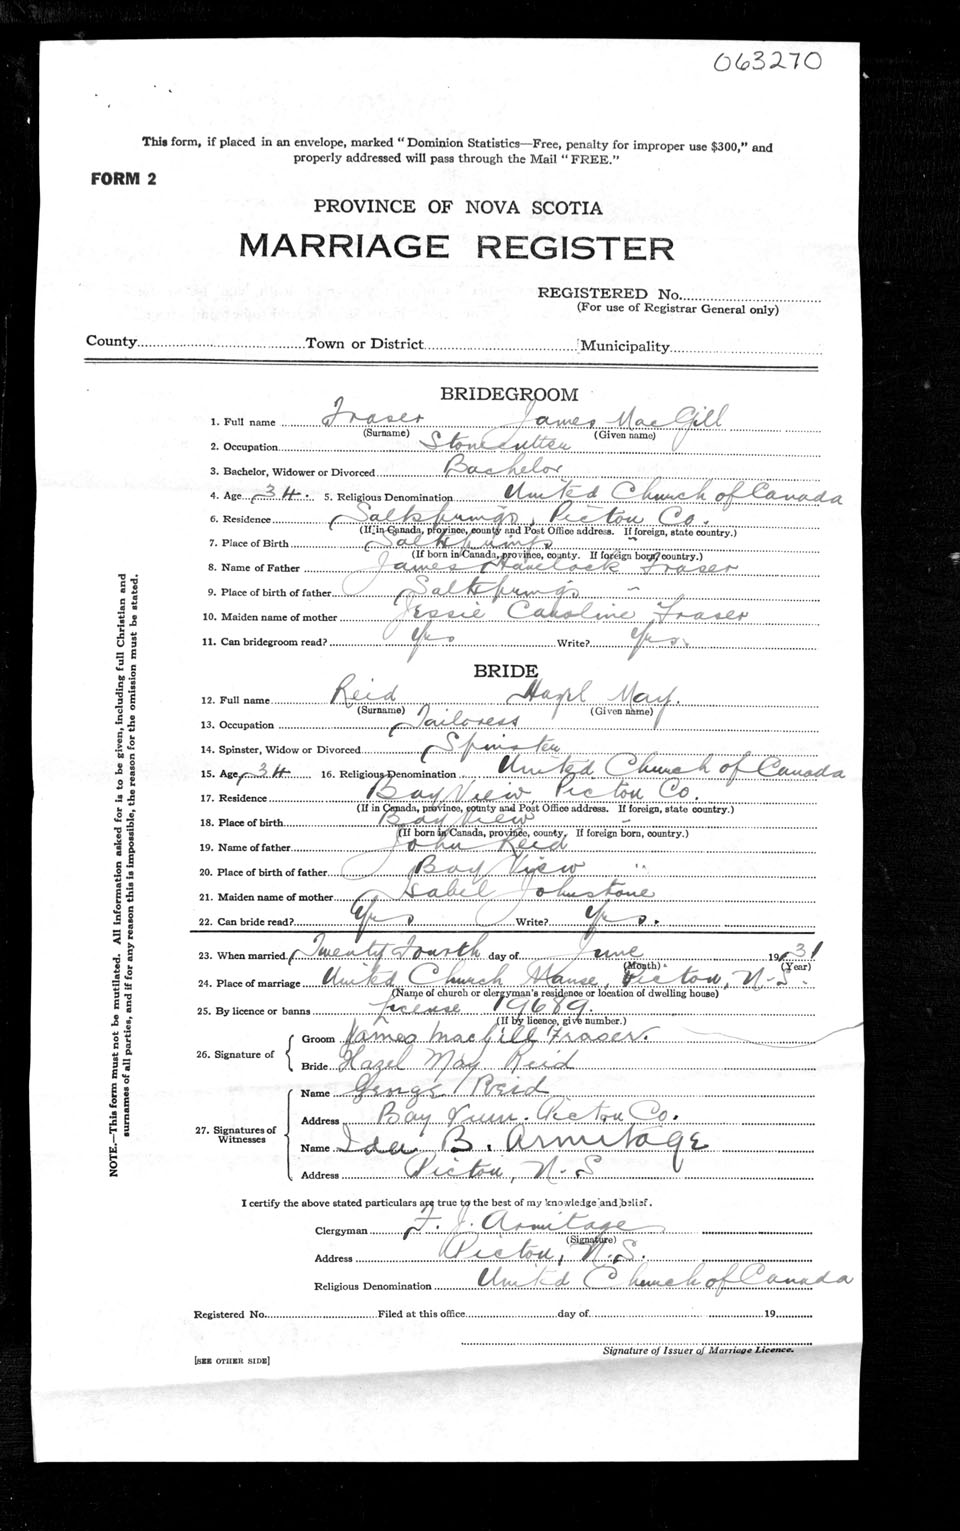 063270
This form, if placed in an envelope, marked "Dominion Statistics—Free, penalty for improper use $300," and
properly addressed will pass through the Mail "FREE."
FORM 2
PROVINCE OF NOVA SCOTIA
MARRIAGE REGISTER
REGISTERED No.
(For use of Registrar General only)
County Town or District Municipality
BRIDEGROOM
1. Full name Fraser James MacGill
(Surname) (Given name)
2. Occupation Stonecutter
3. Bachelor, Widower or Divorced Bachelor
4. Age 34. 5. Religious Denomination United Church of Canada
6. Residence Saltsprings, Pictou Co.
(If in Canada, province, county and Post Office address. If foreign, state country.)
7. Place of Birth Saltsprings
(If born in Canada, province, county. If foreign born, country.)
8. Name of Father James Havelock Fraser
9. Place of birth of father Saltsprings "
10. Maiden name of mother Jessie Caroline Fraser
11. Can bridegroom read? Yes Write? Yes.
BRIDE
12. Full name Reid Hazel May.
(Surname) (Given name)
13. Occupation Tailoress
14. Spinster, Widow or Divorced Spinster
15. Age 34 16. Religious Denomination United Church of Canada
17. Residence Bay View, Pictou Co.
(If in Canada, province, county and Post Office address. If foreign, state country.)
18. Place of birth Bay View "
(If born in Canada, province, county. If foreign born, country.)
19. Name of father John Reid
20. Place of birth of father Bay View "
21. Maiden name of mother Isabel Johnstone
22. Can bride read? Yes Write? Yes.
23. When married Twenty Fourth day of June 1931
(Month) (Year)
24. Place of marriage United Church Manse, Pictou, N.S.
(Name of church or clergyman's residence or location of dwelling house)
25. By licence or banns License 19689.
(If by licence, give number.)
26. Signature of Groom James MacGill Fraser.
Bride Hazel May Reid
27. Signatures of Witnesses Name George Reid
Address Bay View. Pictou Co.
Name Ida B. Armitage
Address Pictou, N.S
I certify the above stated particulars are true to the best of my knowledge and belief.
Clergyman F. J. Armitage
(Signature)
Address Pictou, N.S.
Religious Denomination United Church of Canada
Registered No. Filed at this office day of 19
Signature of Issuer of Marriage Licence.
[SEE OTHER SIDE]
NOTE.—This form must not be mutilated. All information asked for is to be given, including full Christian and
surnames of all parties, and if for any reason this is impossible, the reason for the omission must be stated.